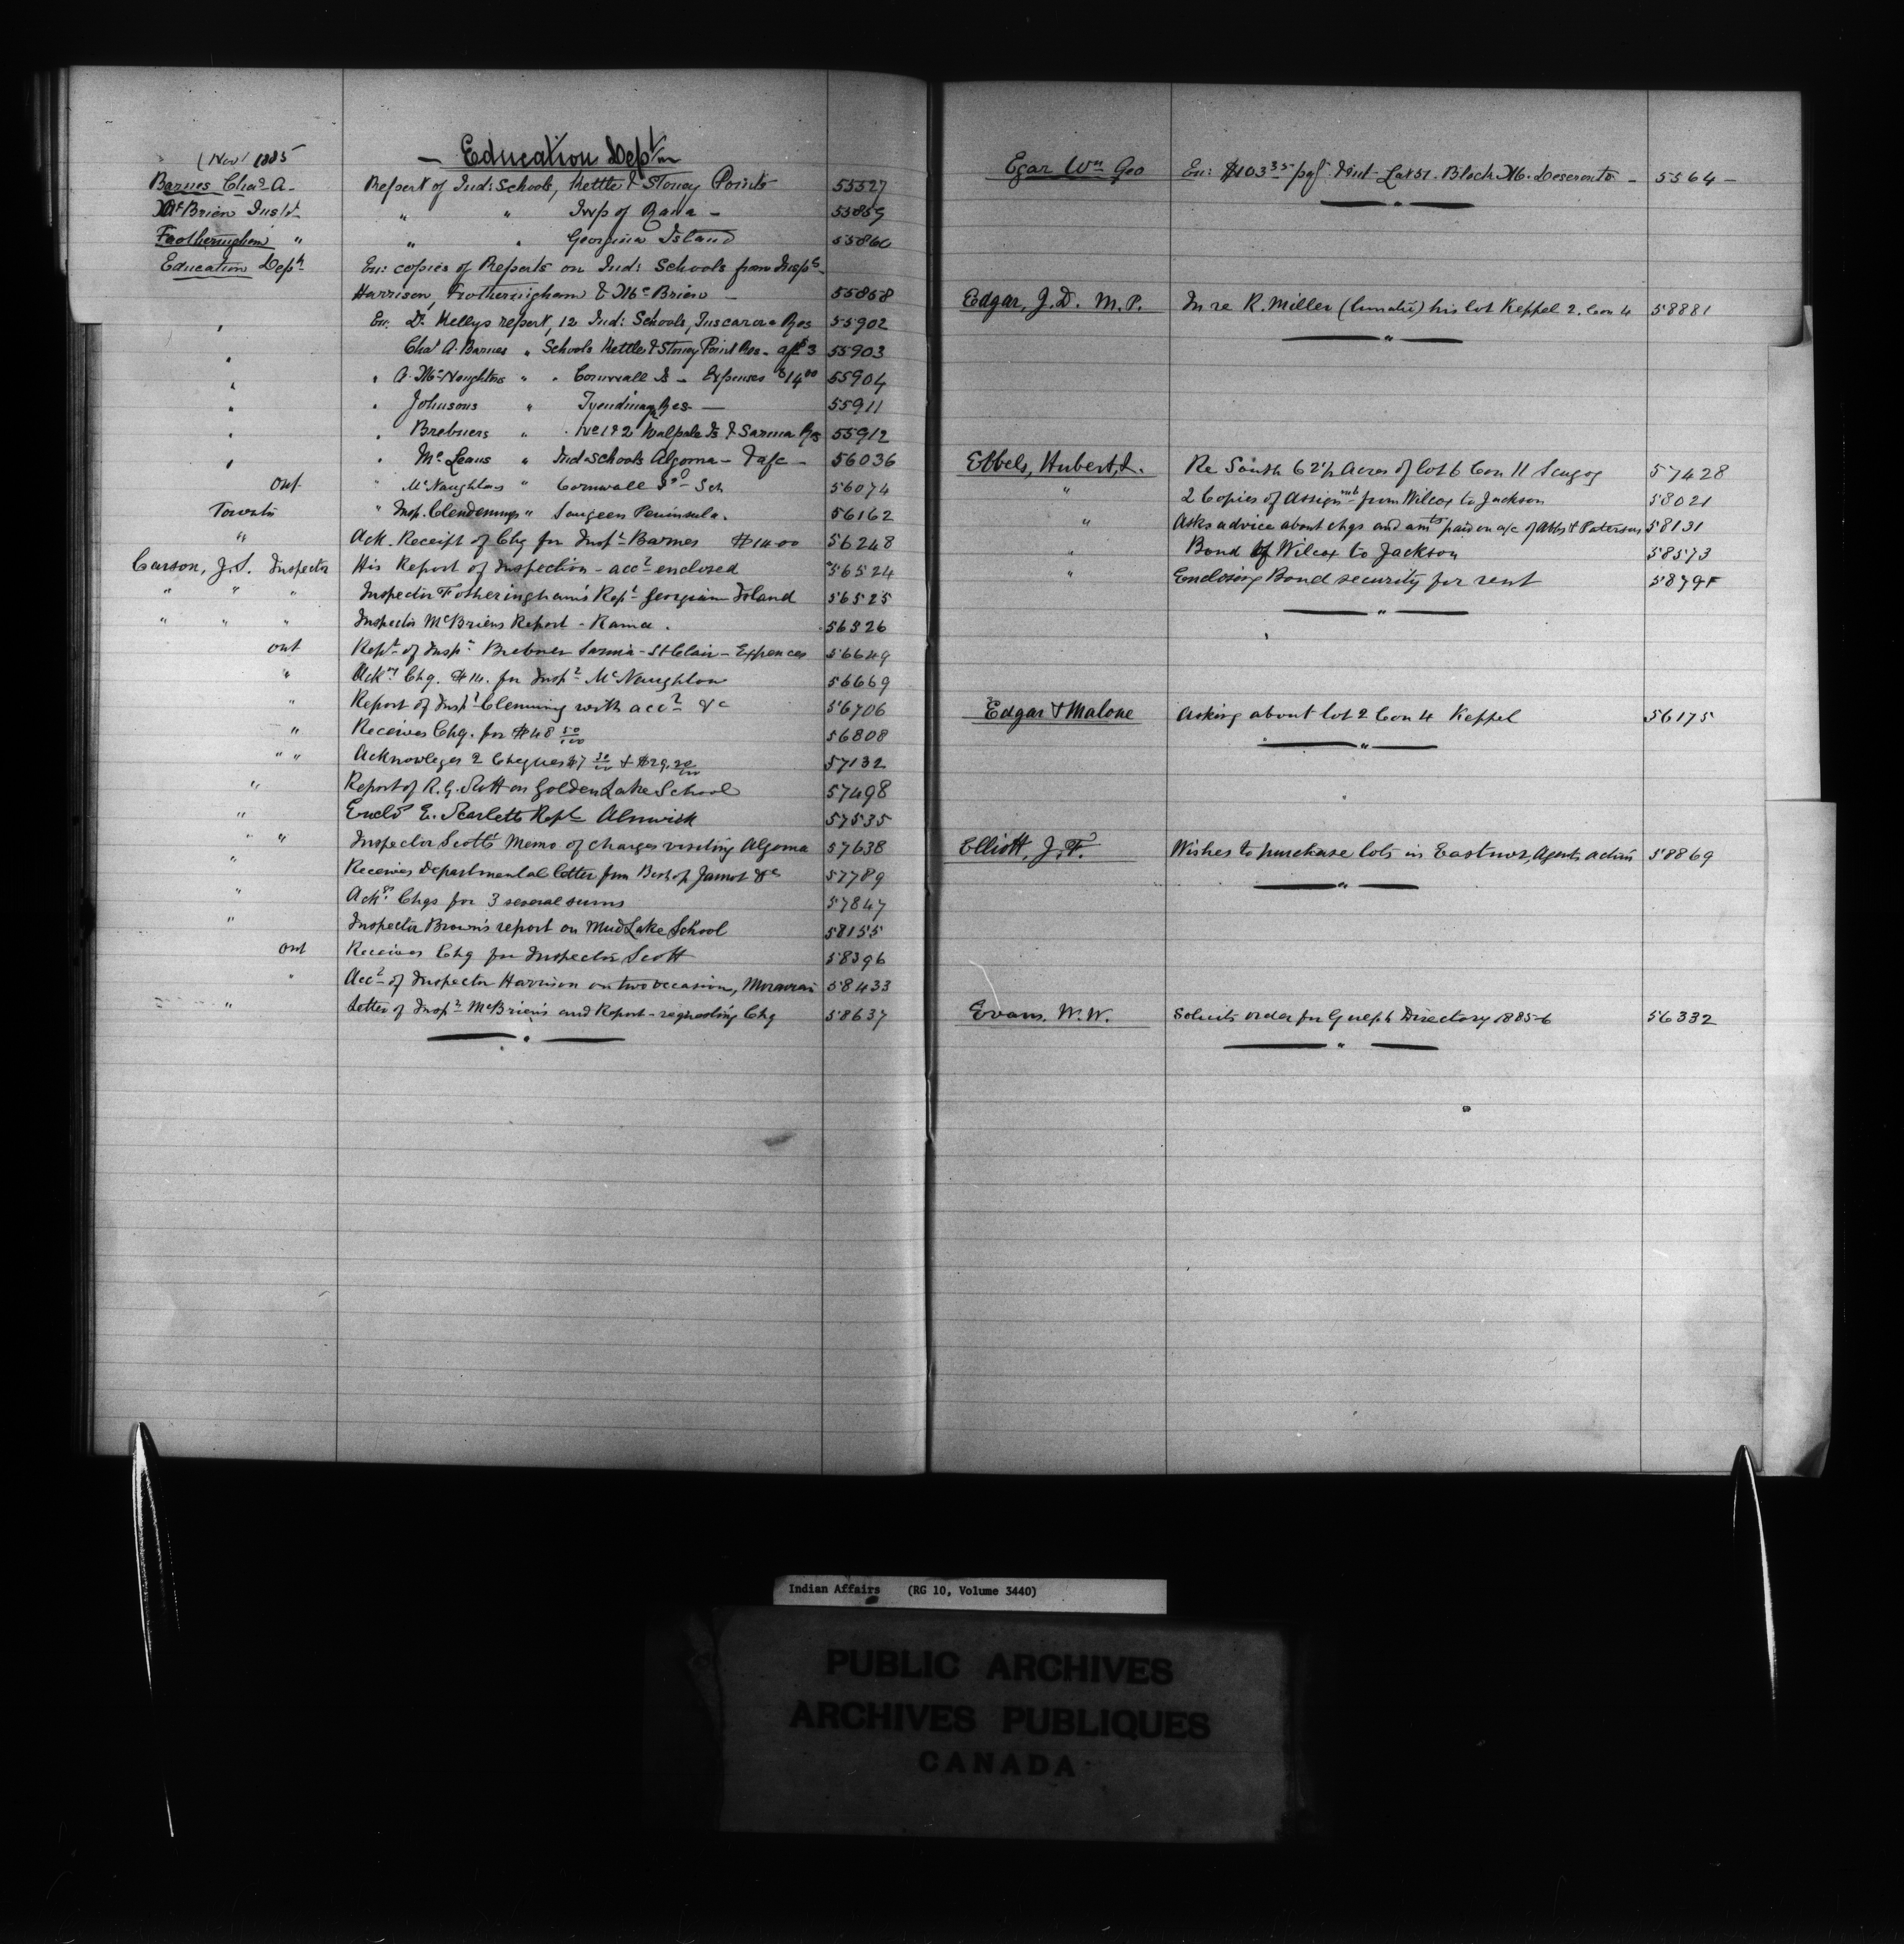 (Nov 1885
— Education Dept
Barnes Chas A. Report of Ind: Schools, Kettle & Stoney Points 55527
McBrien Inspt " " Twp of Rama — 55859
Fotheringham " " " Georgina Island 55860
Education Dept En: copies of Reports on Ind: Schools from Inspts
Harrison, Frotheringham & McBrien — 55858
" En: Dr Kellys report, 12 Ind: Schools, Tuscarora Res 55902
" Chas A. Barnes " Schools Kettle & Stoney Point Res - 55903
" " A. McNaughtons " " Cornwall Is — Expenses $14.00 55904
" " Johnsons " Tyendinaga Res — 55911
" " Brebners " No 1 & 2 Walpole Is & Sarnia Res 55912
" " McLeans " Ind: Schools Algoma — 56036
Ont " McNaughtons " Cornwall Isd Sch 56074
Toronto " Insp. Clendennings " Saugeen Peninsula. 56162
" Ack. Receipt of Chq for Inspt Barnes $14.00 56248
Carson, J.S. Inspector His Report of Inspection - acct enclosed 56524
" " " Inspector Fotheringham's Rept Georgian Island 56525
" " " Inspector McBriens Report - Rama. 56526
Ont Rept of Inspr Brebner Sarnia - St Clair - Expences 56649
" Ackn Chq. $14. for Inspr McNaughton 56669
" Report of Inspr Clenning with acct &c 56706
" Receives Chq. for $48 50/100 56808
" " Acknowleges 2 Cheques $7 30/100 + $29.20/100 57132
" Report of R. G. Scott on Golden Lake School 57498
" Enclo E. Scarletts Rept Alnwick 57535
" " Inspector Scotts Memo of charges visiting Algoma 57638
" Receives Departmental letter from Bishop Jamot &c 57789
" Ack Chqs for 3 several sums 57847
" Inspector Brown's report on Mud Lake School 58155
Ont Receives Chq for Inspector Scott 58396
" Acct of Inspector Harrison on two occasion, Moravian 58433
" Letter of Inspr McBriens and Report - requesting Chq 58637
Egar Wm Geo En: $103.35 Lot 51. Block Deseronto — 5564 —
Edgar, J.D. M.P. In re R. Miller (lunatic) his lot Keppel 2. Con 4 58881
Ebbels, Hubert, L. Re South 62½ Acres of lot 6 Con 11 Scugog 57428
" 2 Copies of Assignmt from Wilcox to Jackson 58021
" Asks advice about chgs and amts paid on a/c of & Paterson 58131
" Bond of Wilcox to Jackson 58573
" Enclosing Bond security for rent
Edgar & Malone Asking about lot 2 Con 4 Keppel 56175
Elliott, J.F. Wishes to purchase lots in Eastnor, Agents action 58869
Evans. W.W. Solicits order for Guelph Directory 1885-6 56332
Indian Affairs (RG 10, Volume 3440)
PUBLIC ARCHIVES
ARCHIVES PUBLIQUES
CANADA